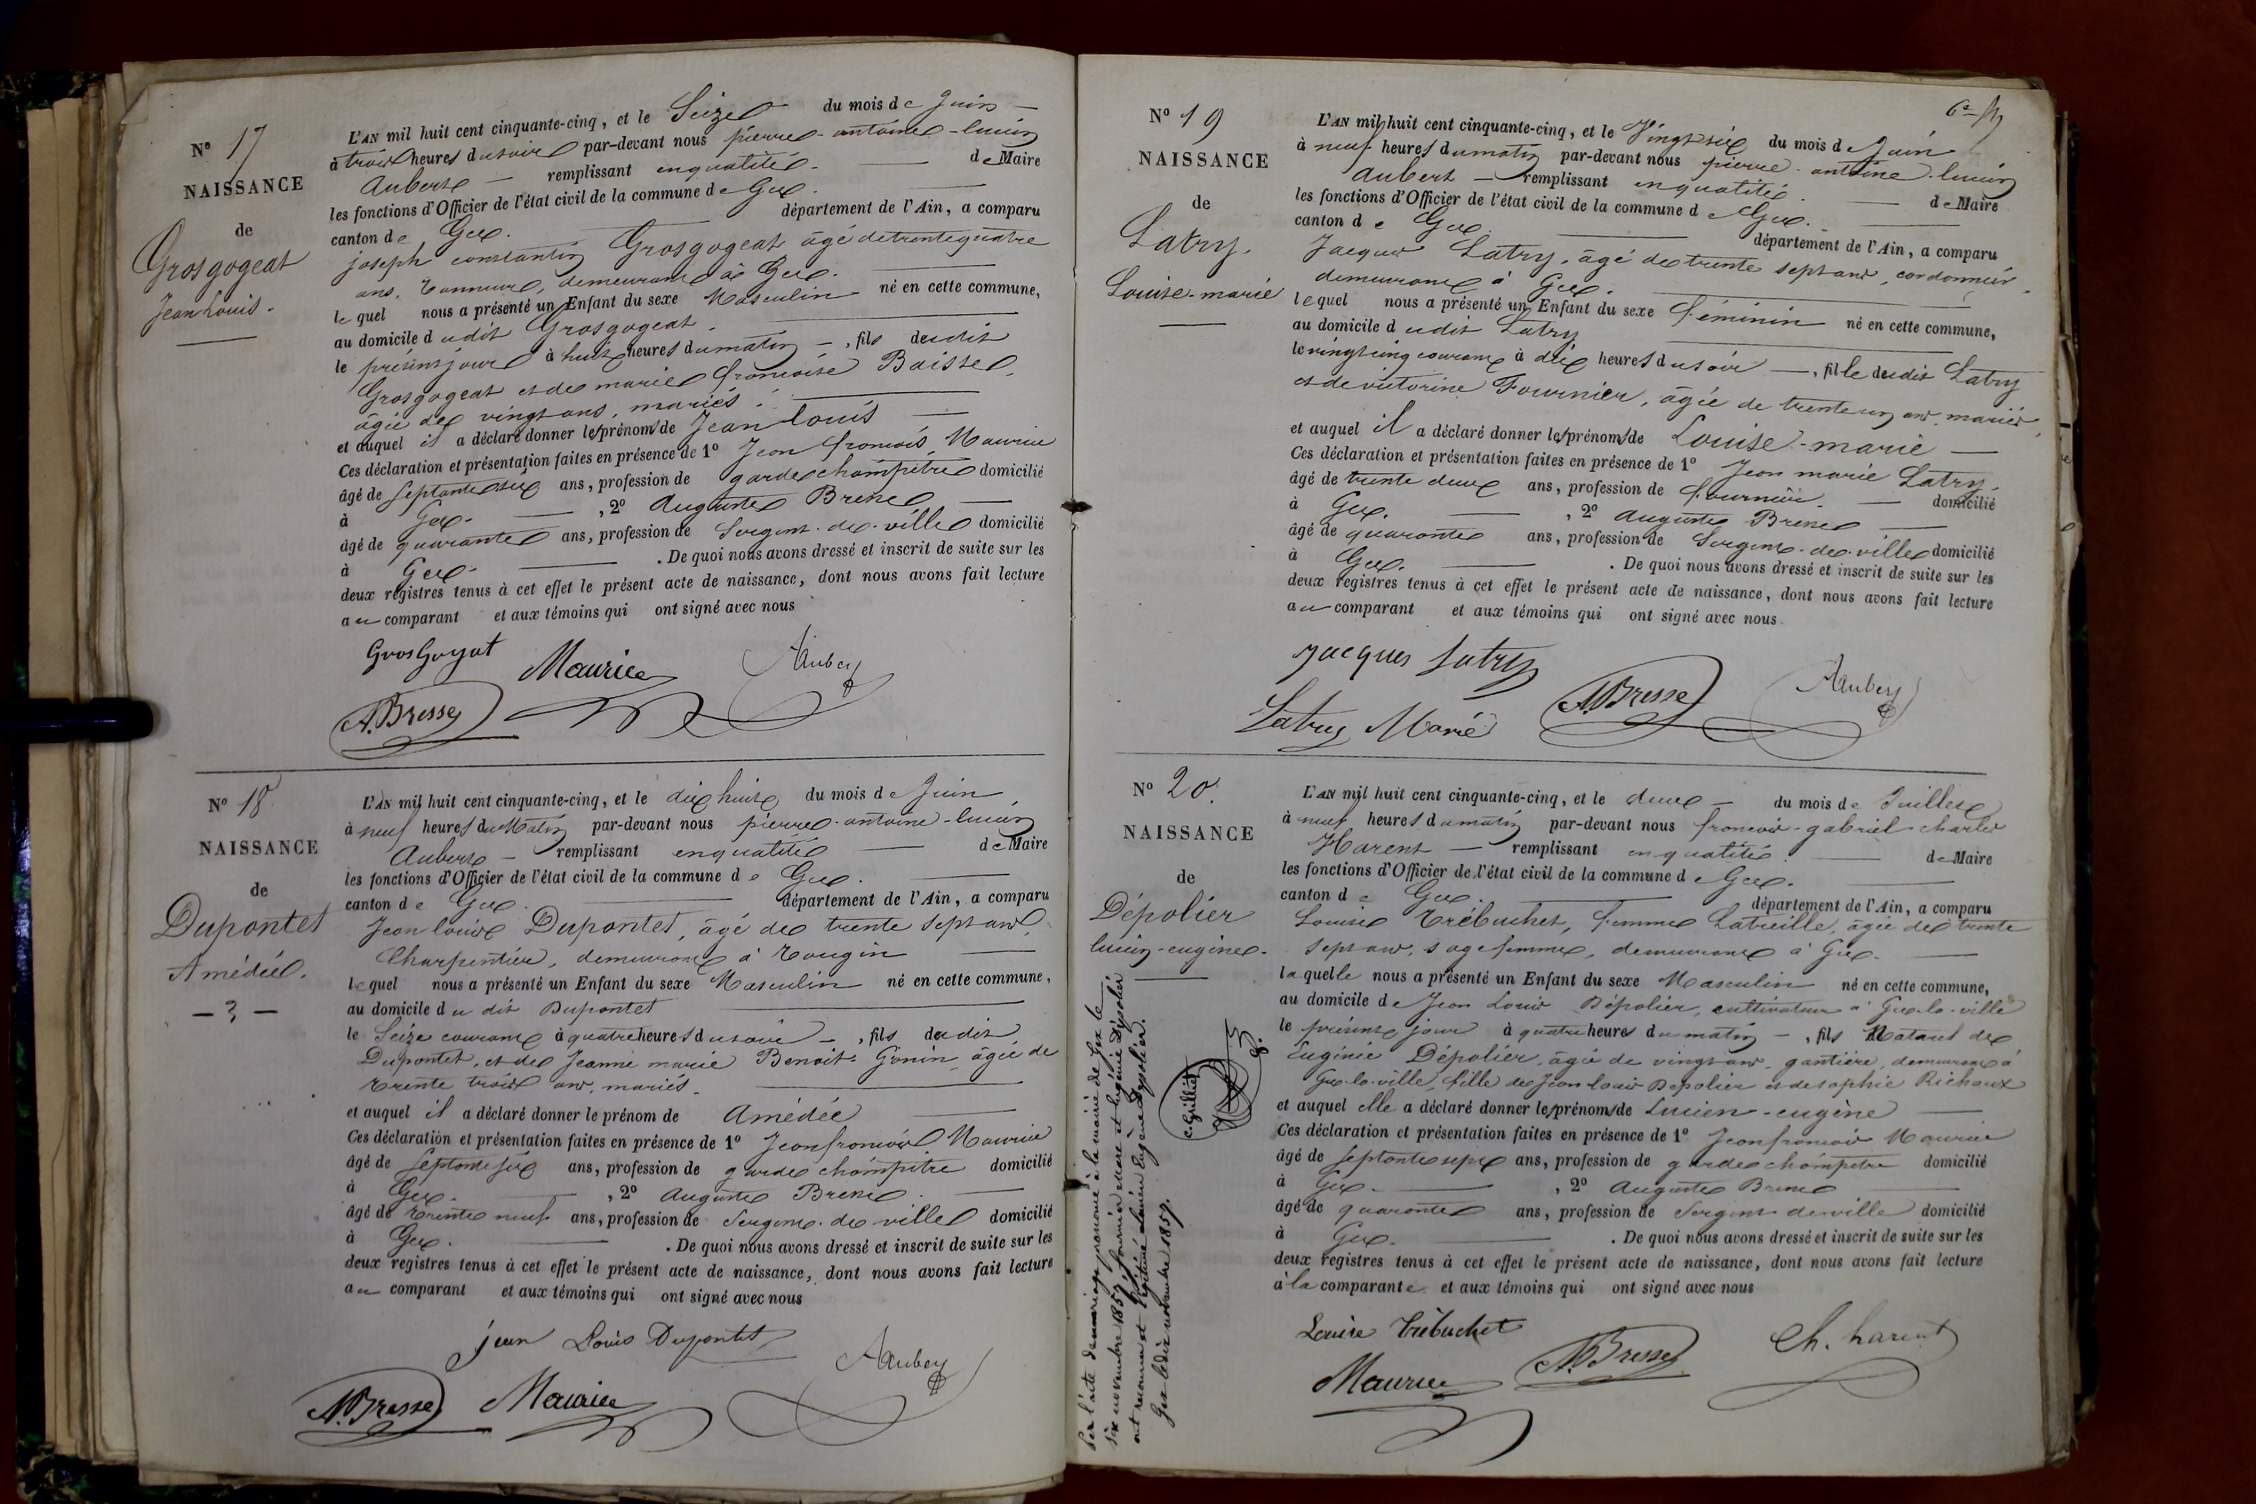 N° 17
NAISSANCE
de
Grosgogeat
Jean Louis.
L'AN mil huit cent cinquante-cinq, et le Seize du mois de Juin
à trois heures du soir par-devant nous pierre-antoine-lucien
Aubert remplissant en qualité de Maire
les fonctions d'Officier de l'état civil de la commune de Gex.
canton de Gex. département de l'Ain, a comparu
joseph constantin Grosgogeat âgé de trente quatre
ans, Tanneur, demeurant à Gex.
lequel nous a présenté un Enfant du sexe Masculin né en cette commune,
au domicile dudit Grosgogeat.
le présent jour à huit heures du matin, fils dudit
Grosgogeat et de marie françoise Baisse
âgée de vingt ans, mariés.
et auquel il a déclaré donner les prénoms de Jean louis
Ces déclaration et présentation faites en présence de 1° Jean françois Maurice
âgé de septante six ans, profession de garde champêtre domicilié
à Gex. , 2° Auguste Bresse
âgé de quarante ans, profession de Sergent-de-ville domicilié
à Gex. . De quoi nous avons dressé et inscrit de suite sur les
deux registres tenus à cet effet le présent acte de naissance, dont nous avons fait lecture
au comparant et aux témoins qui ont signé avec nous
GrosGogat Maurice Aubert
A. Bresse
N° 18
NAISSANCE
de
Dupontet
Amédée.
— ? —
L'AN mil huit cent cinquante-cinq, et le dix huit du mois de Juin
à neuf heures du Matin par-devant nous pierre-antoine-lucien
Aubert remplissant en qualité de Maire
les fonctions d'Officier de l'état civil de la commune de Gex.
canton de Gex département de l'Ain, a comparu
Jean louis Dupontet, âgé de trente sept ans
Charpentier, demeurant à Tougin
lequel nous a présenté un Enfant du sexe Masculin né en cette commune,
au domicile du dit Dupontet
le Seize courant à quatre heures du soir, fils dudit
Dupontet, et de Jeanne marie Benoit-Gonin, âgée de
trente trois ans, mariés.
et auquel il a déclaré donner le prénom de Amédée
Ces déclaration et présentation faites en présence de 1° Jean françois Maurice
âgé de septante six ans, profession de garde champêtre domicilié
à Gex. , 2° Auguste Bresse
âgé de trente neuf ans, profession de Sergent-de-ville domicilié
à Gex. . De quoi nous avons dressé et inscrit de suite sur les
deux registres tenus à cet effet le présent acte de naissance, dont nous avons fait lecture
au comparant et aux témoins qui ont signé avec nous
jean Louis Dupontet Aubert
A. Bresse Maurice
N° 19
NAISSANCE
de
Latry.
Louise-marie
L'AN mil huit cent cinquante-cinq, et le Vingt six du mois de Juin
à neuf heures du matin par-devant nous pierre-antoine-lucien
Aubert remplissant en qualité de Maire
les fonctions d'Officier de l'état civil de la commune de Gex.
canton de Gex. département de l'Ain, a comparu
Jacques Latry, âgé de trente sept ans, cordonnier,
demeurant à Gex.
lequel nous a présenté un Enfant du sexe féminin né en cette commune,
au domicile dudit Latry
le vingt cinq courant à dix heures du soir, fille dudit Latry
et de victorine Fournier, âgée de trente un ans, mariés,
et auquel il a déclaré donner les prénoms de Louise-marie
Ces déclaration et présentation faites en présence de 1° Jean marie Latry,
âgé de trente deux ans, profession de fournier domicilié
à Gex. , 2° Auguste Bresse
âgé de quarante ans, profession de Sergent-de-ville domicilié
à Gex. . De quoi nous avons dressé et inscrit de suite sur les
deux registres tenus à cet effet le présent acte de naissance, dont nous avons fait lecture
au comparant et aux témoins qui ont signé avec nous
Jacques Latry Aubert
Latry Marie A. Bresse
N° 20.
NAISSANCE
de
Dépolier
lucien-eugène.
L'AN mil huit cent cinquante-cinq, et le deux du mois de Juillet
à neuf heures du matin par-devant nous françois-gabriel-charles
Harent remplissant en qualité de Maire
les fonctions d'Officier de l'état civil de la commune de Gex.
canton de Gex. département de l'Ain, a comparu
Louise Trébuchet, femme Latreille, âgée de trente
sept ans, sage femme, demeurant à Gex.
laquelle nous a présenté un Enfant du sexe Masculin né en cette commune,
au domicile de Jean Louis Dépolier, cultivateur à Gex-la-ville
le présent jour à quatre heures du matin, fils Naturel de
Eugénie Dépolier, âgée de vingt ans, gantière, demeurant à
Gex-la-ville, fille de Jean louis Dépolier et de sophie Richoux
et auquel elle a déclaré donner les prénoms de Lucien-eugène
Ces déclaration et présentation faites en présence de 1° Jean françois Maurice
âgé de septante sept ans, profession de garde champêtre domicilié
à Gex. , 2° Auguste Bresse
âgé de quarante ans, profession de Sergent de ville domicilié
à Gex. . De quoi nous avons dressé et inscrit de suite sur les
deux registres tenus à cet effet le présent acte de naissance, dont nous avons fait lecture
à la comparante et aux témoins qui ont signé avec nous
Louise Trébuchet Ch. harent
Maurice A. Bresse
Par l'acte de mariage prononcé à la mairie de Gex le
six novembre 1857, Fournier et Eugénie Dépolier
ont reconnu et légitimé Lucien Eugène Dépolier.
Gex le dix novembre 1857.